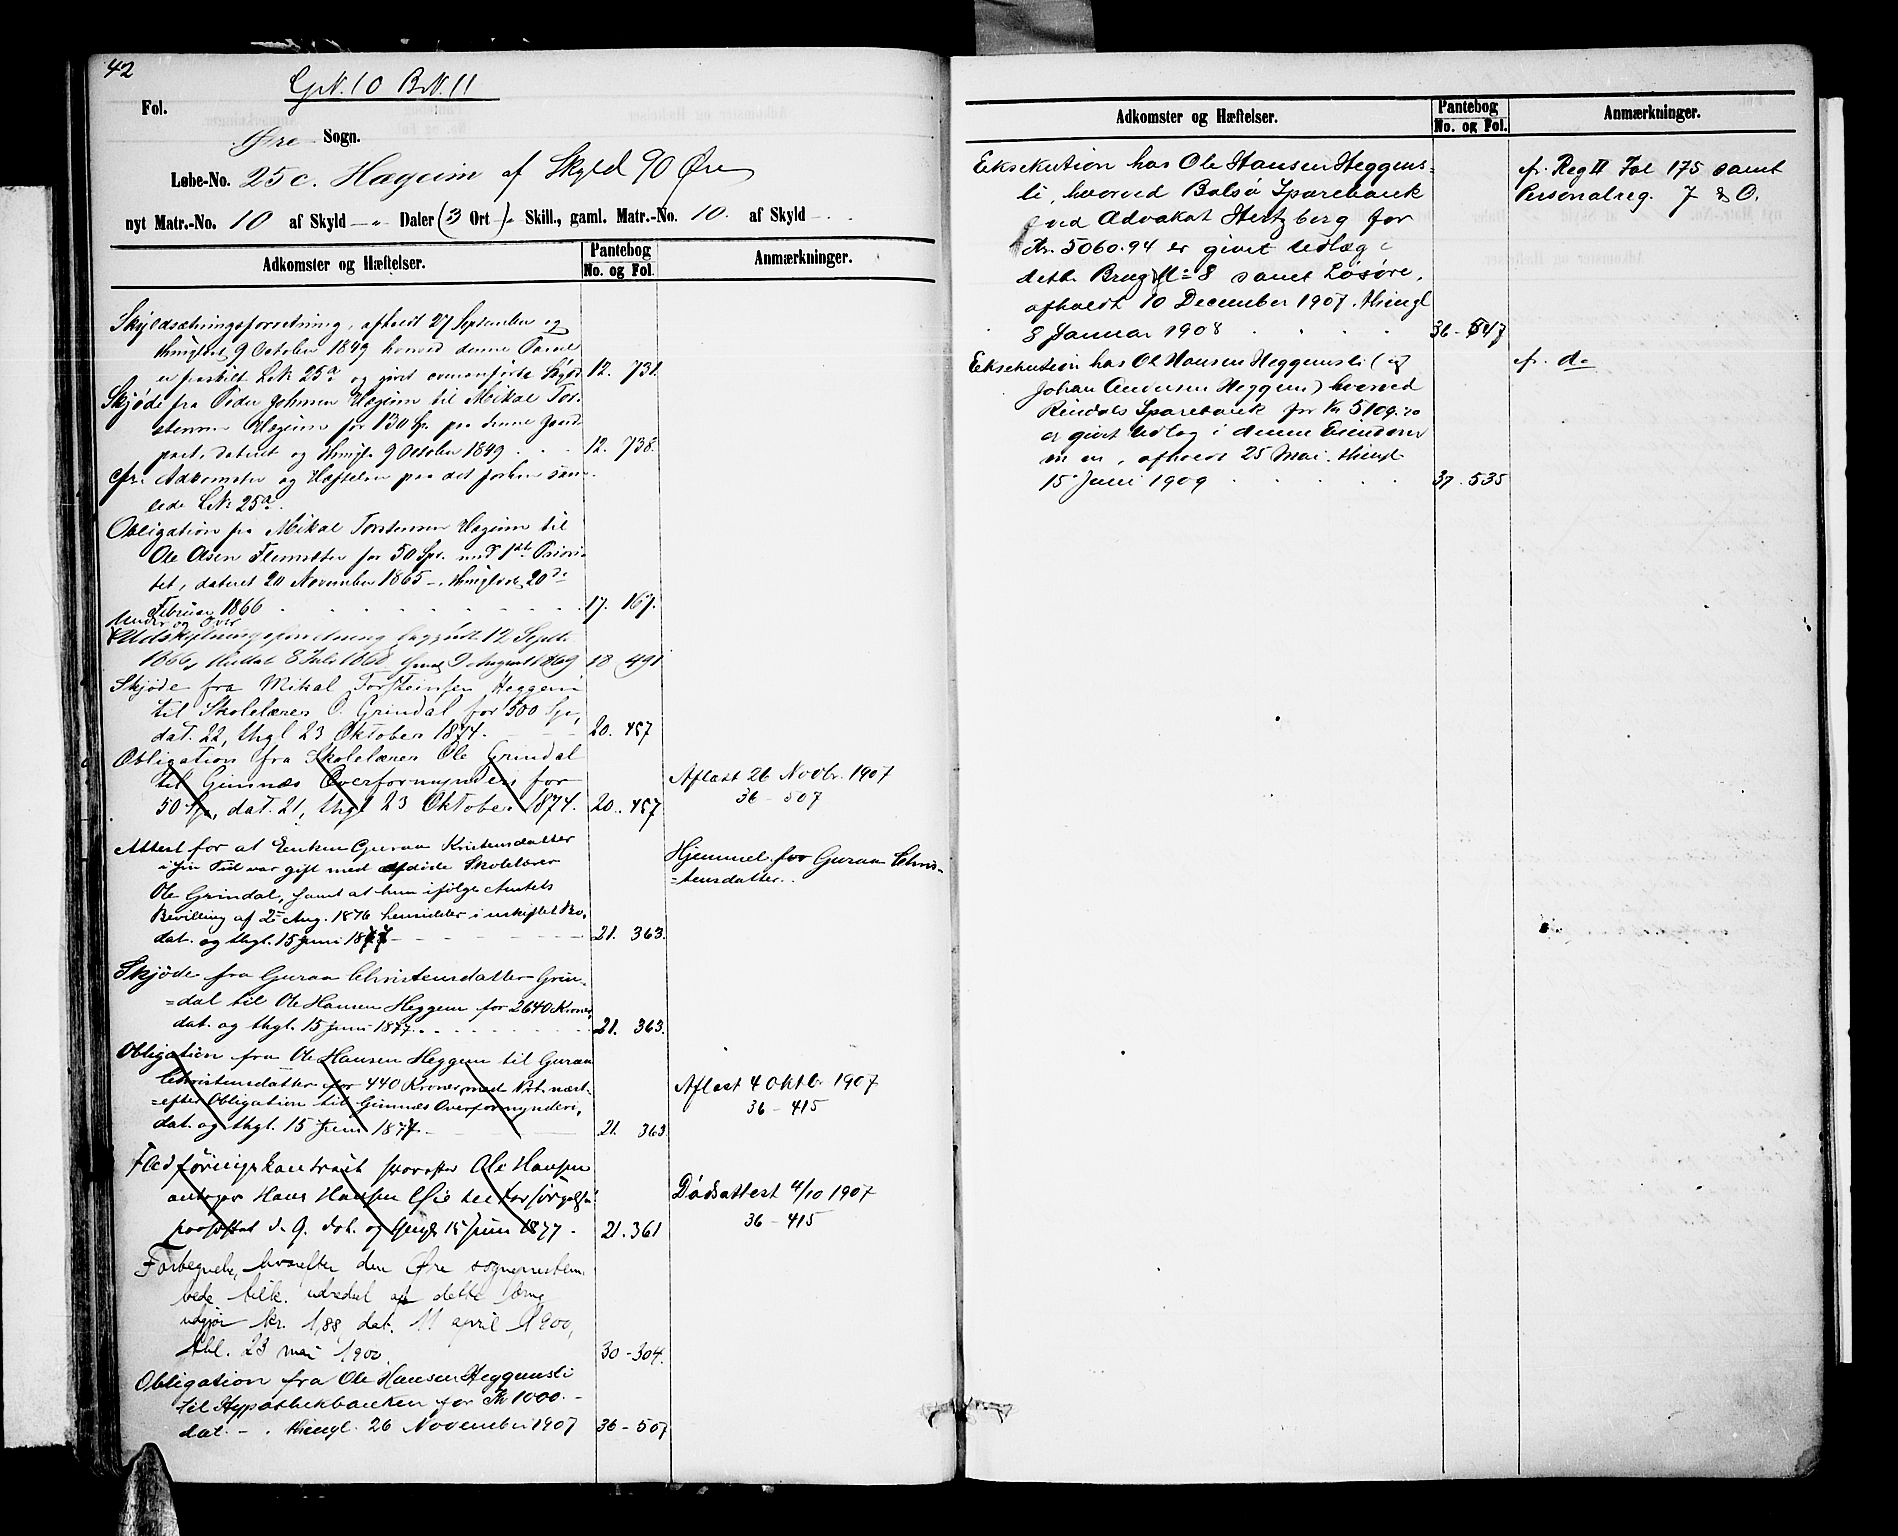 42
GN. 10 BN. 11
Fol.
Øre Sogn.
Løbe-No. 25c. Hægeim af Skyld 90 Øre
nyt Matr.-No. 10 af Skyld — „ Daler (3 Ort) „ Skill., gaml. Matr.-No. 10. af Skyld
Adkomster og Hæftelser. Pantebog Anmærkninger.
No. og Fol.
Skyldsætningsforretning, afholdt 27 September og
thinglæst 9 October 1849 hvorved denne Parcel
er fraskilt L.N. 25a og givet ovenanførte Skyld 12. 731.
Skjøde fra Peder Johnsen Hægeim til Mikal Tor-
stensen Hægeim for 130 Sp. paa denne Gaard
part, dateret og thingl. 9 October 1849 . . . 12. 738.
cfr. Adkomster og Hæftelser paa det forhen sam-
lede L.N. 25a.
Obligation fra Mikal Torstensen Hægeim til
Ole Olsen Flemsæter for 50 Spd. med 1ste Priori-
tet, dateret 20 November 1865 –, thinglæst 20de
Februar 1866 . . . 17. 167.
Under og Over
Udskiftningsforretning begyndt 12 Septbr.
1866, sluttet 8 Juli 1868 9 August 1869 18 491
Skjøde fra Mikal Torsteinsen Heggem
til Skolelærer O. Grindal for 500 Spd,
dat. 22, thgl 23 Oktober 1874. 20. 457
Obligation fra Skolelærer Ole Grindal
til Gimnæs Overformynderi for Aflæst 26 Novbr. 1907
50 Spd, dat. 21, thgl 23 Oktober 1874. 20. 457 36 - 507
Attest for at Enken Guraa Kristensdatter Hjemmel for Guraa Chris-
i sin Tid var gift med afdøde Skolelærer =tensdatter.
Ole Grindal, samt at hun ifølge Amtets
Bevilling af 2= Aug. 1876 hensidder i uskiftet Bo,
dat. og thgl. 15 Juni 1877 21. 363.
Skjøde fra Guraa Christensdatter Grin-
=dal til Ole Hansen Heggem for 2640 Kroner
dat. og thgl. 15 Juni 1877. 21. 363.
Obligation fra Ole Hansen Heggem til Guraa
Christensdatter for 440 Kroner med Prt. næst- Aflæst 4 Oktbr 1907
=efter Obligation til Gimnæs Overformynderi, 36 - 415
dat. og thgl. 15 Juni 1877. 21. 363
Fledføringskontrakt hvorefter Ole Hansen
antager Hans Hansen Øie til Forsørgelse Dødsattest 4/10 1907
d. 9. dat. og thingl 15 Juni 1877. 21. 361 36 - 415
hvorefter den Øre sogneprestem-
bede tilk. udredsel af dette brug
udgjør kr. 1,88, dat. 11 april 1900,
tbl. 23 mai 1900. 30 - 304.
Obligation fra Ole Hansen Heggemsli
til Hypothekbanken for Kr 1000.-
dat. – . thingl. 26 November 1907 36 - 507
Adkomster og Hæftelser. Pantebog Anmærkninger.
No. og Fol.
Eksekution hos Ole Hansen Heggems- cfr. Reg II Fol 175 samt
li, hvorved Bolsø Sparebank Personalreg. J & O.
ved Advokat Hertzberg for
Kr. 5060.94 er givet Udlæg i
dette Brug, N= 8 samt Løsøre,
afholdt 10 December 1907. thingl
8 Januar 1908 36 - 547
Eksekution hos Ole Hansen Heggemsli (og cfr. do
Johan Andersen Heggem) hvorved
Rindals Sparebank for Kr 5109.20
er givet Udlæg i denne Eiendom
m.m., afholdt 25 Mai. thingl
15 Juni 1909 37 - 535